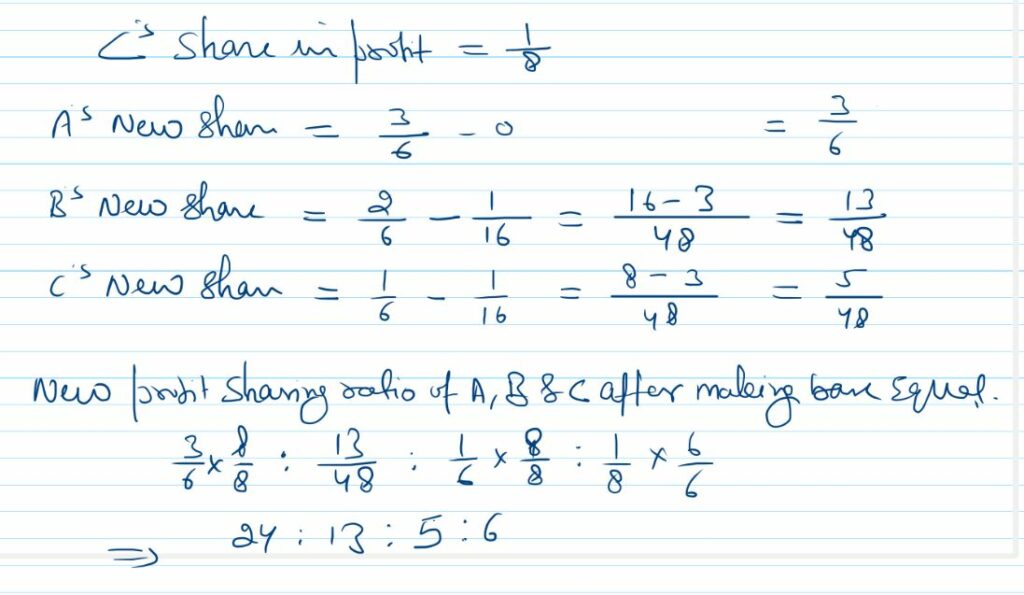 C's share in profit = 1/8
A's New Share = 3/6 - 0 = 3/6
B's New Share = 2/6 - 1/16 = 16-3/48 = 13/48
C's New Share = 1/6 - 1/16 = 8-3/48 = 5/48
New profit sharing ratio of A, B & C after making base Equal.
3/6 x 8/8 : 13/48 : 1/6 x 8/8 : 1/8 x 6/6
⇒ 24 : 13 : 5 : 6